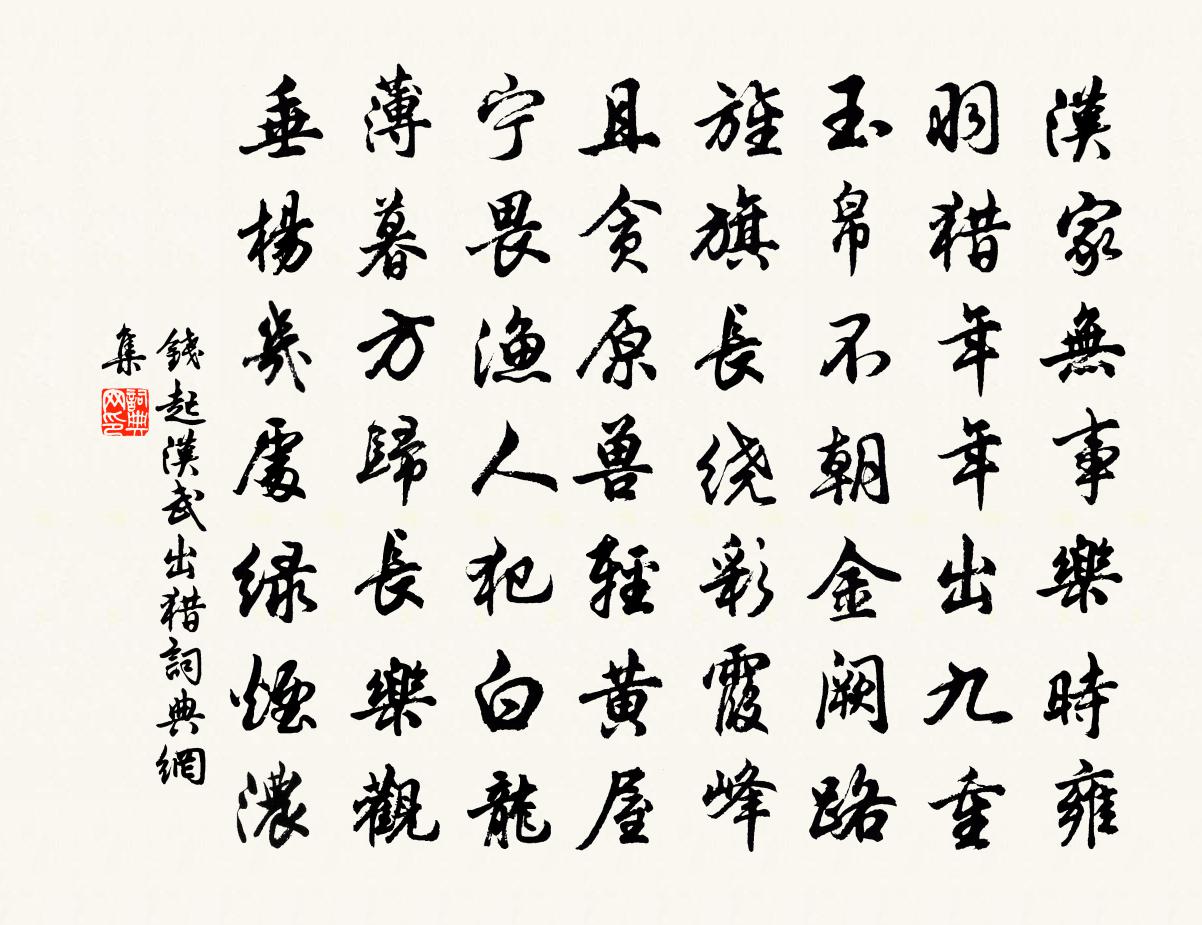 漢家無事樂時雍
羽猎年年出九重
玉帛不朝金阙路
旌旗長绕彩霞峰
且贪原兽輕黄屋
宁畏渔人犯白龍
薄暮方歸長樂觀
垂楊幾處绿煙濃
錢起漢武出猎詞典網
集
詞典
网印